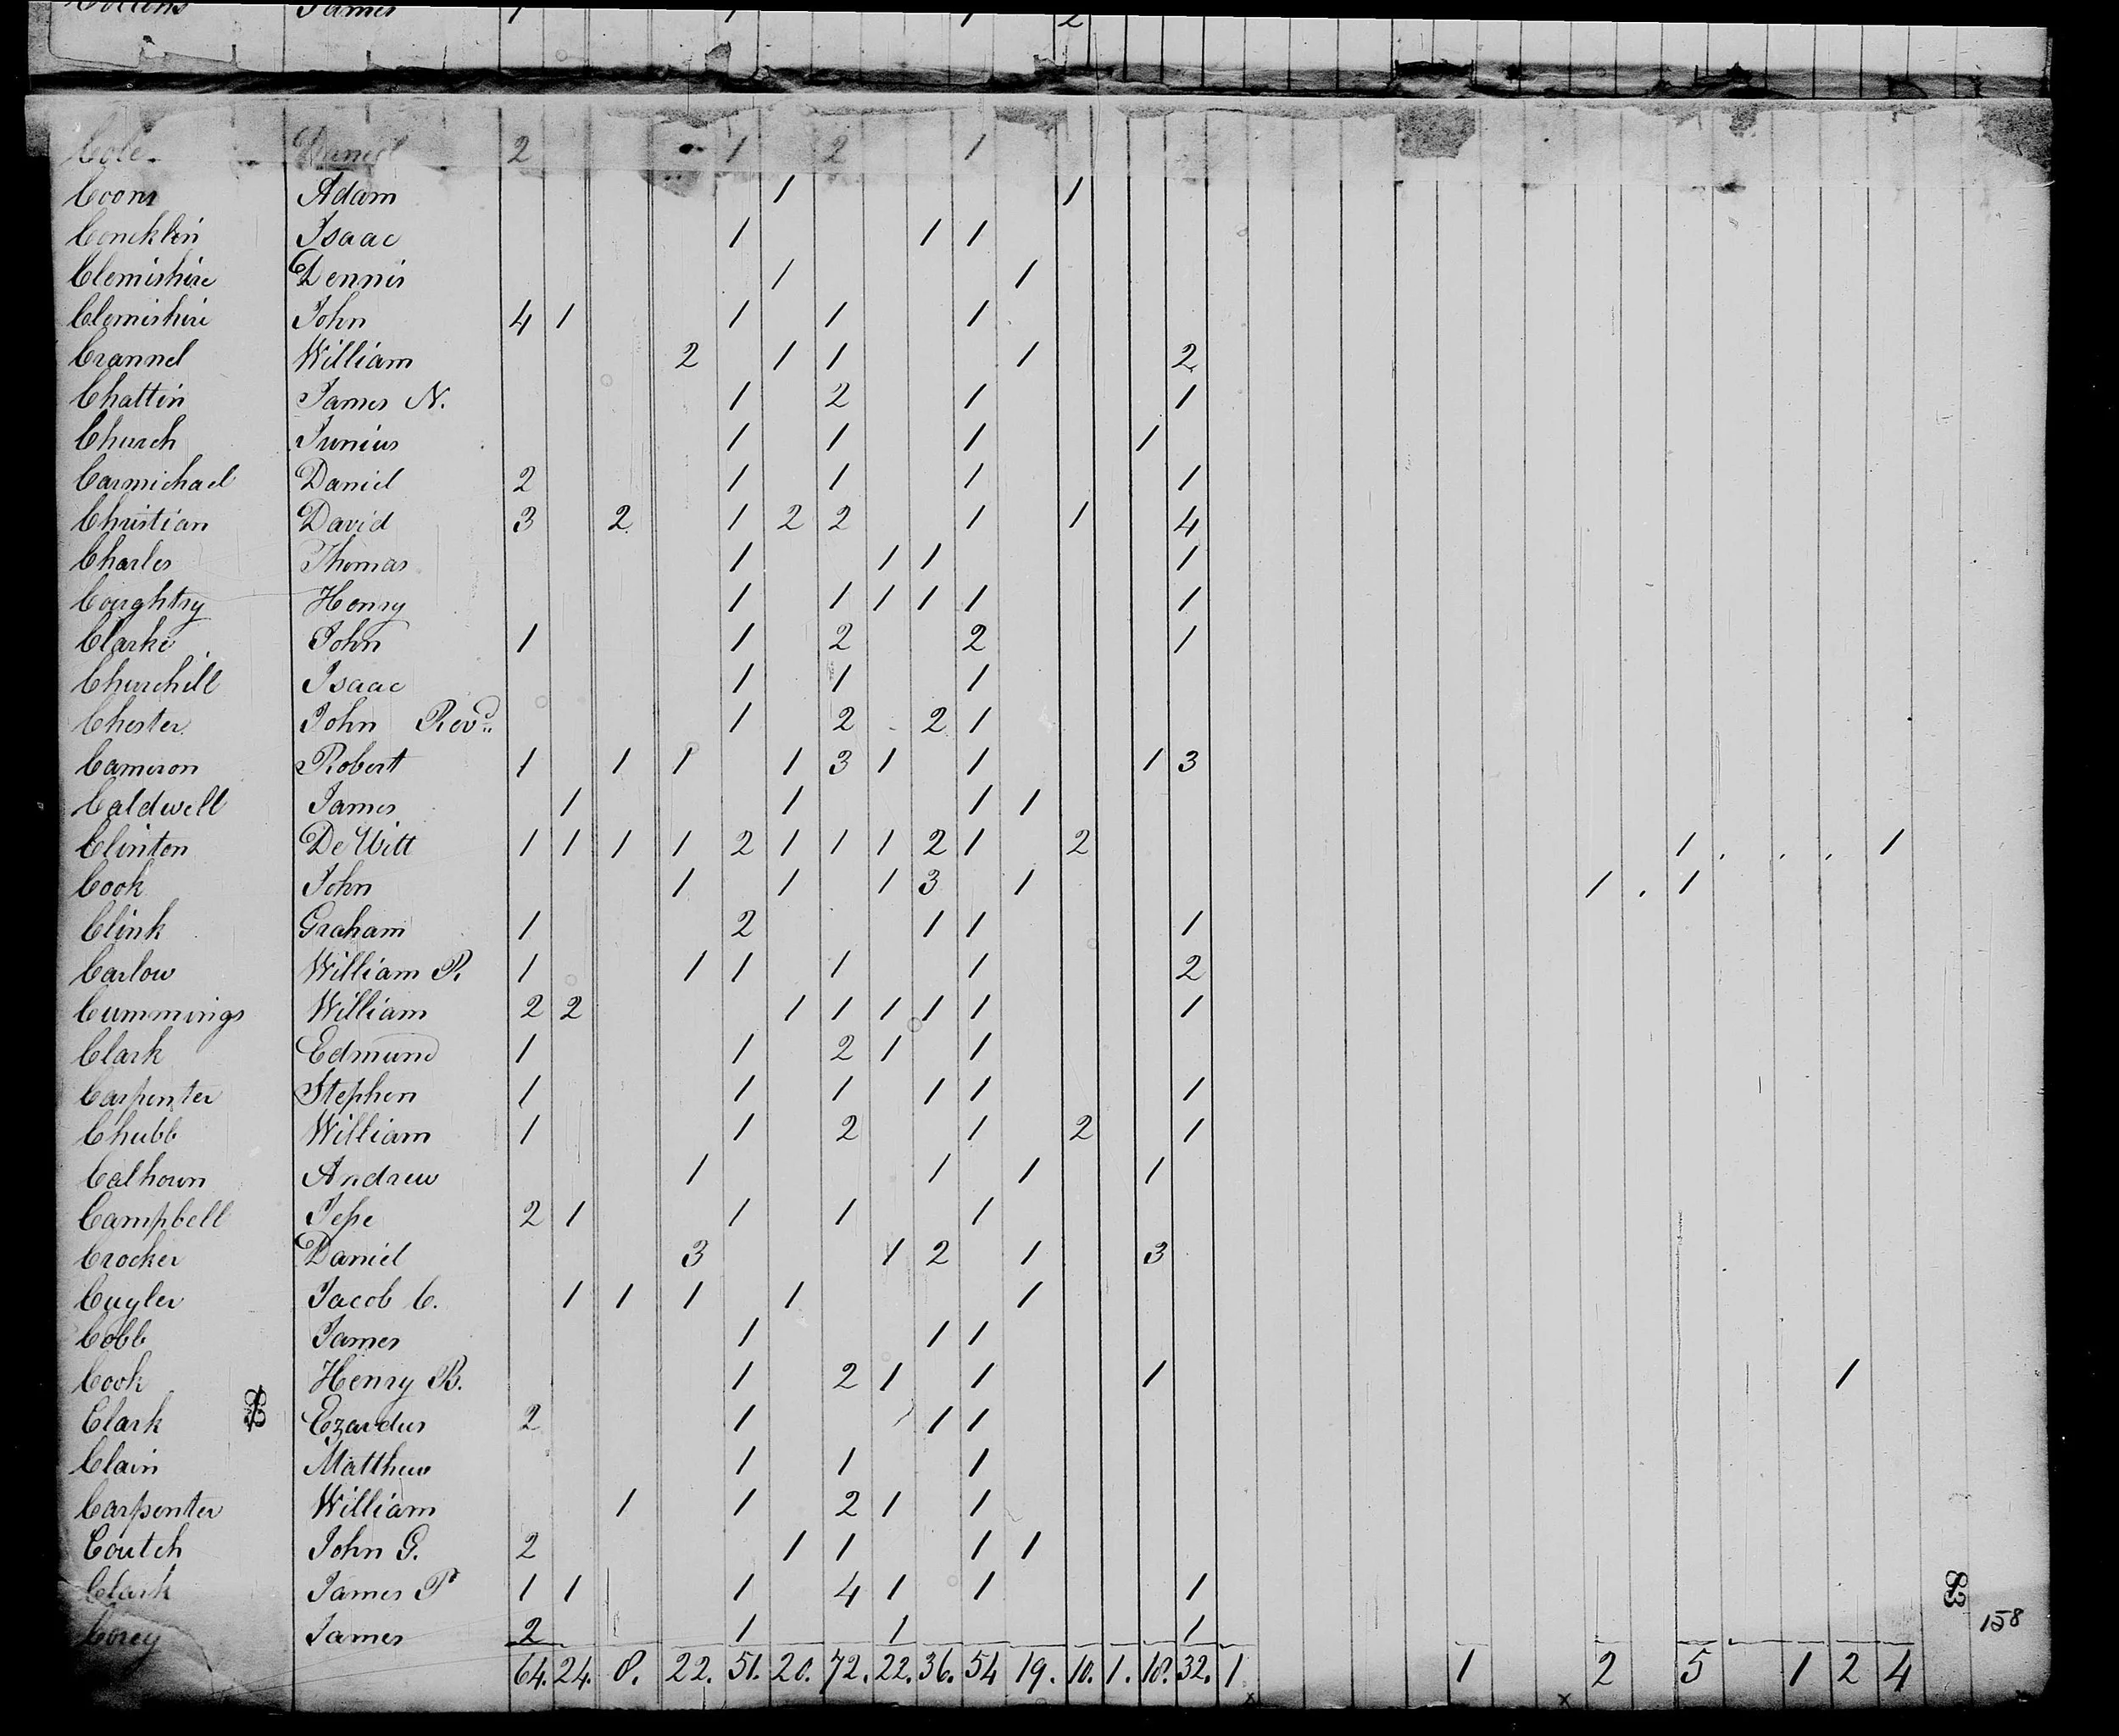 Collins James 1 1 1 2
Cole Daniel 2 1 2 1
Coons Adam 1 1
Concklin Isaac 1 1 1
Clemishire Dennis 1 1
Clemishire John 4 1 1 1 1
Crannel William 2 1 1 1 2
Chattin James N. 1 2 1 1
Church Junius 1 1 1 1
Carmichael Daniel 2 1 1 1 1
Christian David 3 2 1 2 2 1 1 4
Charles Thomas 1 1 1 1
Coughtry Henry 1 1 1 1 1 1
Clarke John 1 1 2 2 1
Churchill Isaac 1 1 1
Chester John Revd. 1 2 2 1
Cameron Robert 1 1 1 1 3 1 1 1 3
Caldwell James 1 1 1 1
Clinton De Witt 1 1 1 1 2 1 1 1 2 1 2 1 . . . 1
Cook John 1 1 1 3 1 1 . 1
Clink Graham 1 2 1 1 1
Carlow William P. 1 1 1 1 1 2
Cummings William 2 2 1 1 1 1 1 1
Clark Edmund 1 1 2 1 1
Carpenter Stephen 1 1 1 1 1 1
Chubb William 1 1 2 1 2 1
Calhoun Andrew 1 1 1 1
Campbell Jesse 2 1 1 1 1
Crocker Daniel 3 1 2 1 3
Cuyler Jacob C. 1 1 1 1 1
Cobb James 1 1 1
Cook Henry B. 1 2 1 1 1 1
Clark Ezardus 2 1 1 1
Clain Matthew 1 1 1
Carpenter William 1 1 2 1 1
Coutch John G. 2 1 1 1 1
Clark James P 1 1 1 4 1 1 1
Corey James 2 1 1 1
158
64. 24. 8. 22. 51. 20. 72. 22. 36. 54 19. 10. 1. 18. 32. 1 1 2 5 1 2 4